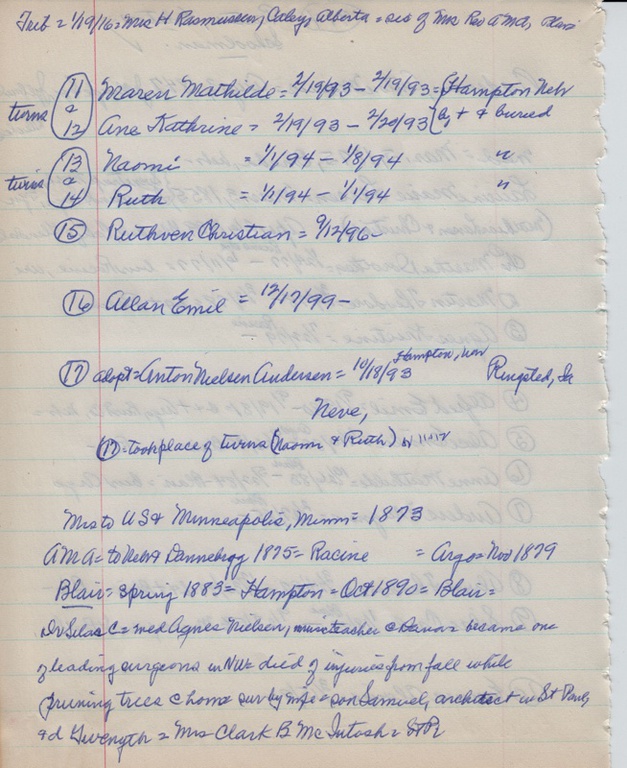 Trib = 1/19/16 = Mrs H Rasmussen, Caley, Alberta = sis of Mrs Rev A Md,
turns 11 Maren Mathilde = 2/19/93 - 2/19/93 = Hampton Neb
& 12 Ane Kathrine = 2/19/93 - 2/20/93 b, + & buried
turns 13 Naomi = 1/1/94 - 1/8/94 "
& 14 Ruth = 1/1/94 - 1/1/94 "
15 Ruthven Christian = 9/12/96 -
16 Allan Emil = 12/17/99 -
17 adopt = Anton Nielsen Andersen = 10/18/93 Hampton, Ringsted, Ia
Neve,
17 - took place of turns (Naomi & Ruth) or 11 & 12
Mrs to US & Minneapolis, Minn = 1873
AMA = to Neb & Dannebrog 1875 = Racine = Argo = Nov 1879
Blair = Spring 1883 = Hampton = Oct 1890 = Blair =
Dr Silas C = med Agnes Nielsen, music teacher @ Dana = became one
of leading surgeons in NW = died of injuries from fall while
pruning trees @ home sur by wife = son Samuel, architect in St Paul,
& d Gwenyth = Mrs Clark B McIntosh = St P